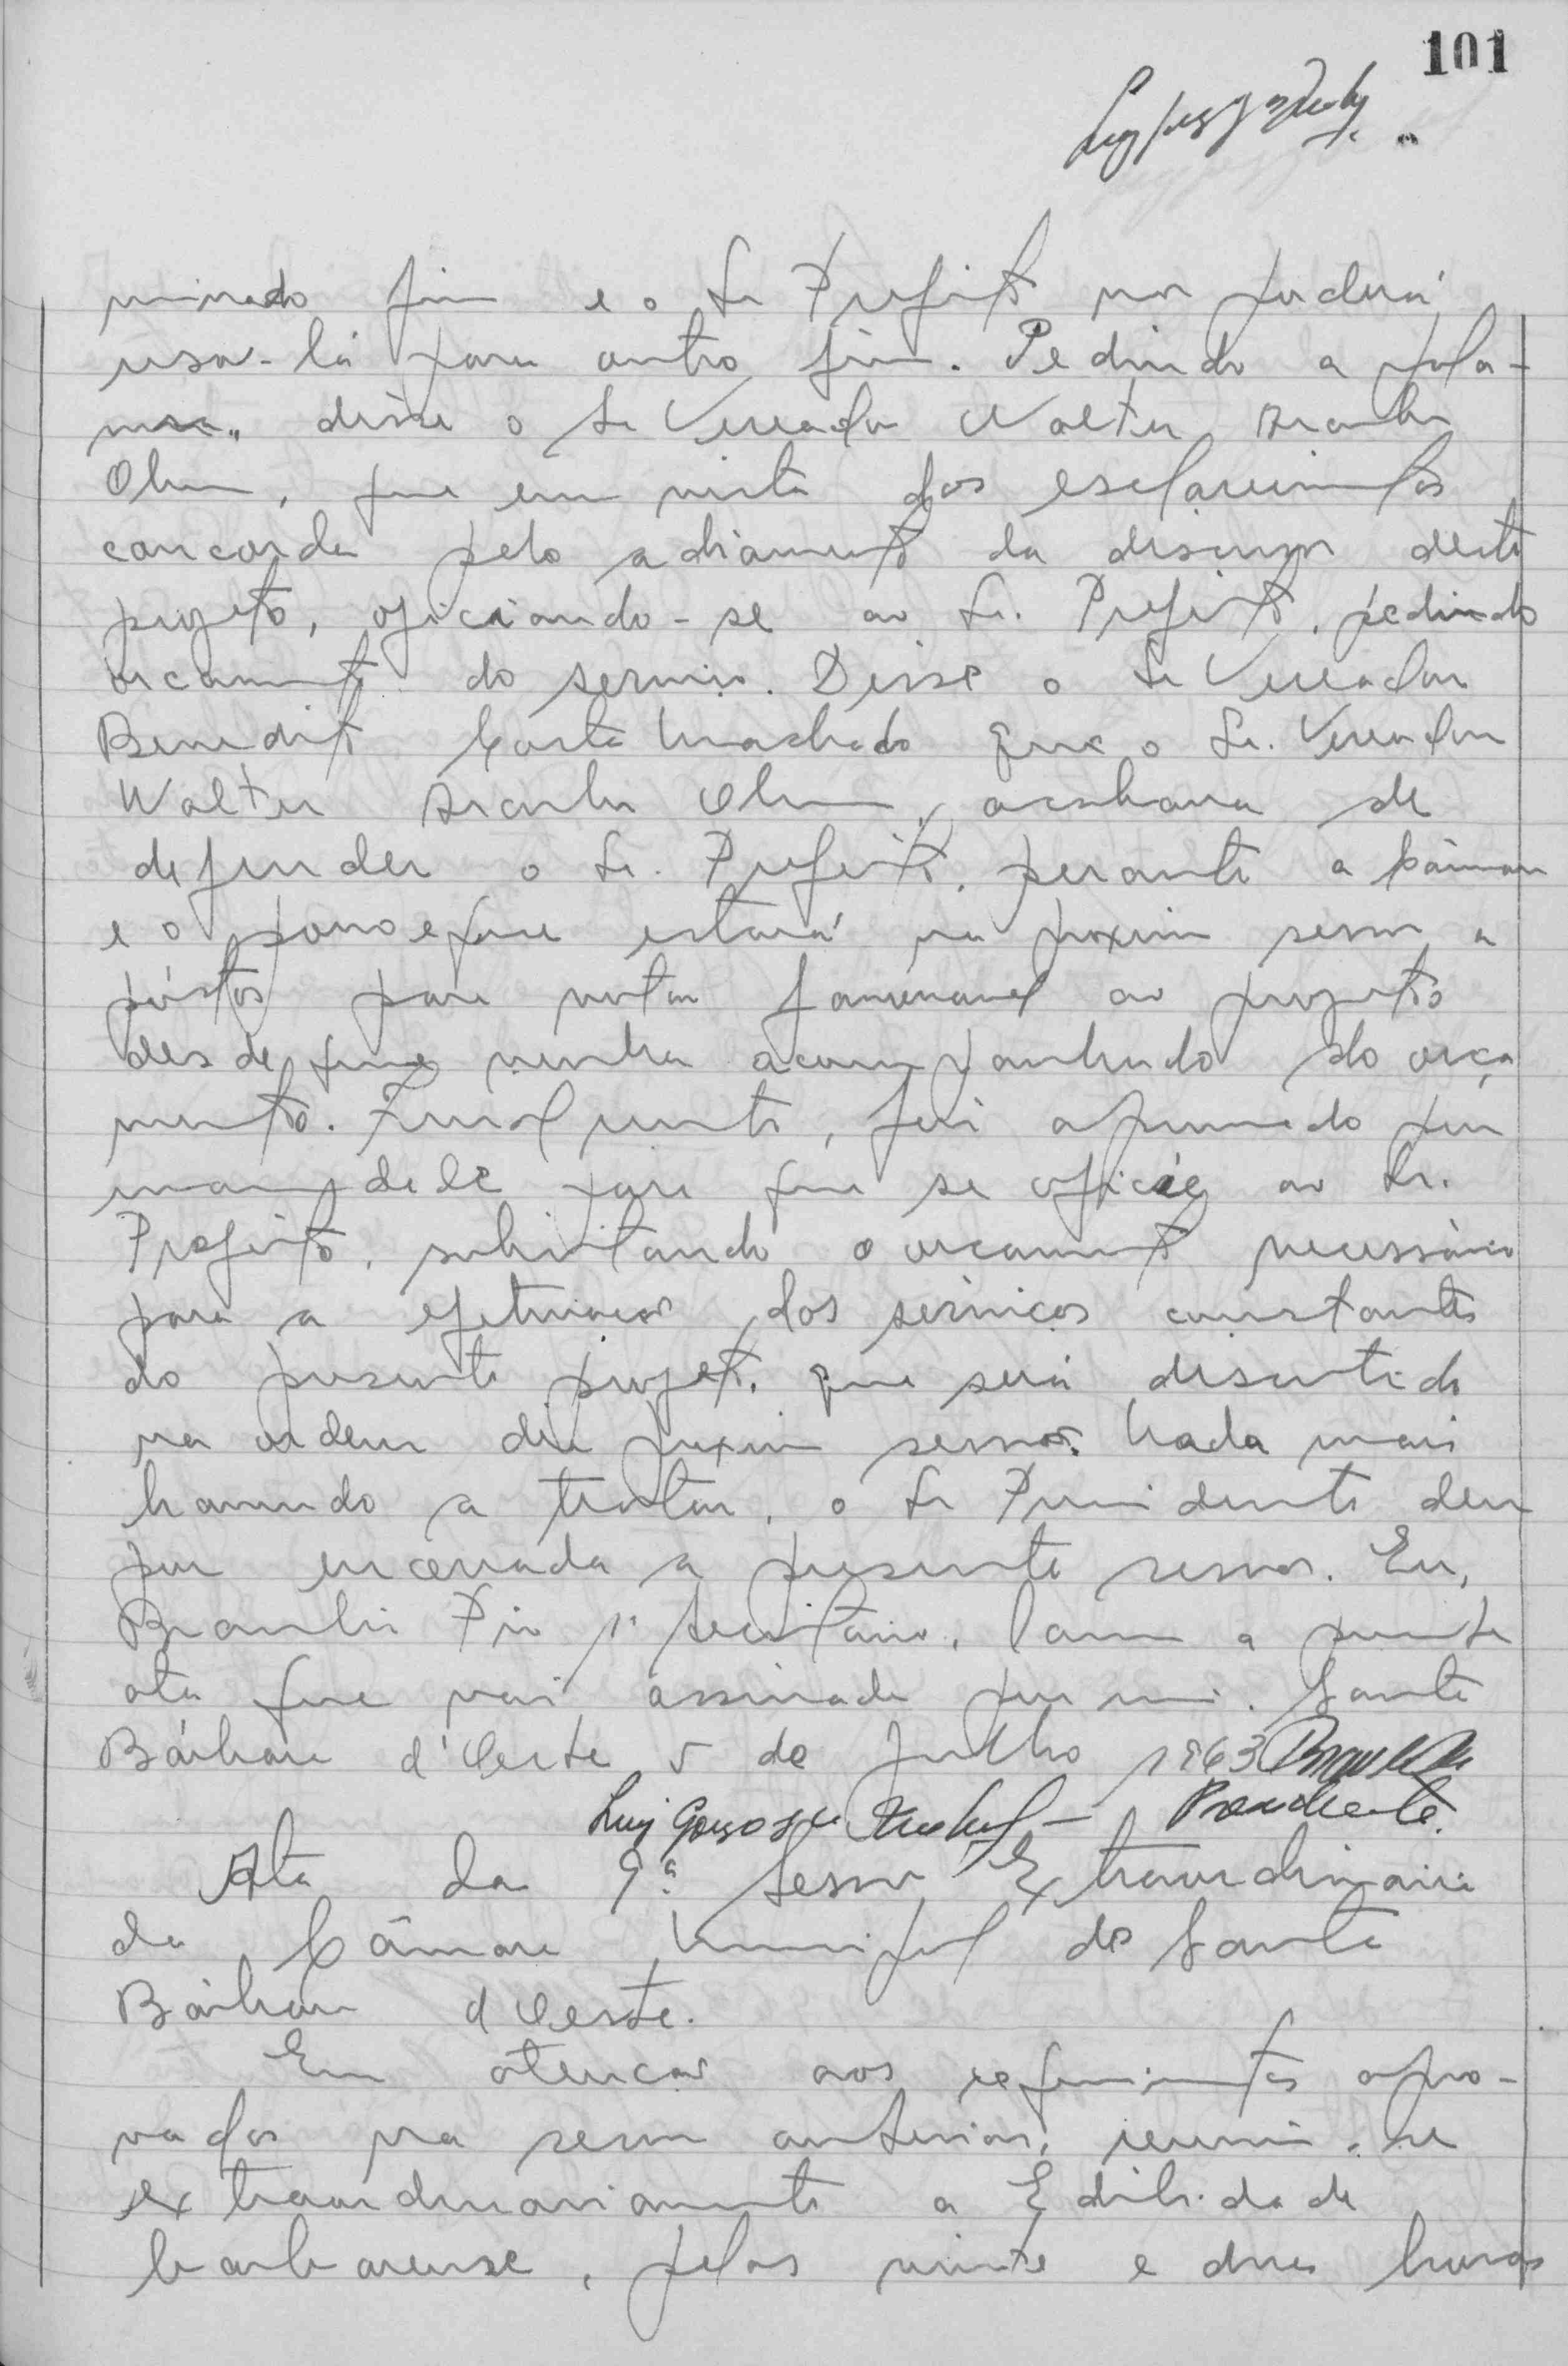 101
minado fim e o Sr Prefeito não poderá
usa-la para outro fim. Pedindo a pala-
vra, disse o Sr Vereador Walter
que em vista dos esclarecimentos
concorda pelo adiamento da discussão deste
projeto, oficiando-se ao Sr. Prefeito, pedindo
orcamento do serviço. Disse o Sr Vereador
Benedito Costa Machado que o Sr. Vereador
Walter acabava de
defender o Sr. Prefeito, perante a Câmara
e o povo e que estará na proxima sessão a
póstos para votar favoravel ao projeto
desde que venha acompanhado do orça
mento. Finalmente, foi aprovado por
unanimidade para que se oficie ao Sr.
Prefeito, solicitando o orcamento necessário
para a efetivacao dos serviços constantes
do presente projeto, que será discutido
na ordem dia proxima sessão. Nada mais
havendo a tratar, o Sr Presidente deu
por encerrada a presente sessão. Eu,
Braulio Pio 1º Secretário, lavrei a presente
ata que vai assinada por mim. Santa
Bárbara d'Oeste 5 de Julho 1963 Braulio Pio
Luiz Gonzaga Presidente.
Ata da 9ª Sessão Extraordinaria
da Câmara Municipal de Santa
Bárbara d'Oeste.
Em atencao aos requerimentos apro-
vados na sessão anterior, reuniu-se
extraordinariamente a Edilidade
barbarense, pelas vinte e duas horas